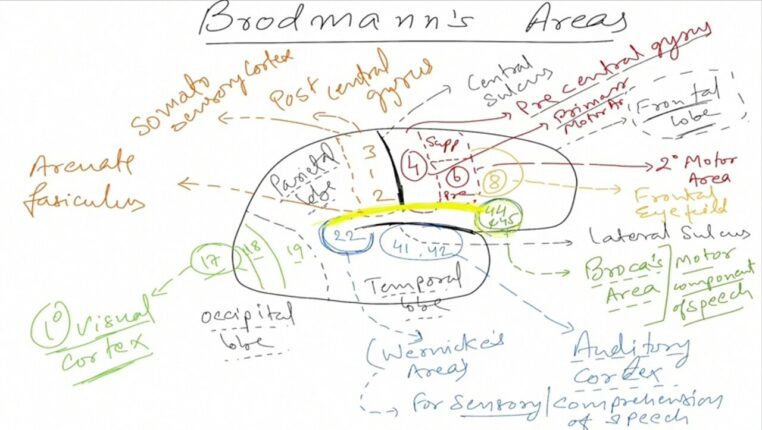 Brodmann's Areas
Somato
sensory cortex
Post central
gyrus
Central
Sulcus
Pre central gyrus
Primary
Motor Ar
Frontal
lobe
Arcuate
fasiculus
Parietal
lobe
3
1
2
4
Supp
6
Pre
8
2° Motor
Area
Frontal
Eye field
44
&45
22
41, 42
Lateral Sulcus
17
18
19
Temporal
lobe
Broca's
Area
Motor
component
of speech
1° Visual
cortex
Occipital
lobe
(Wernicke's
Area's
Auditory
Cortex
For Sensory/comprehension
of speech